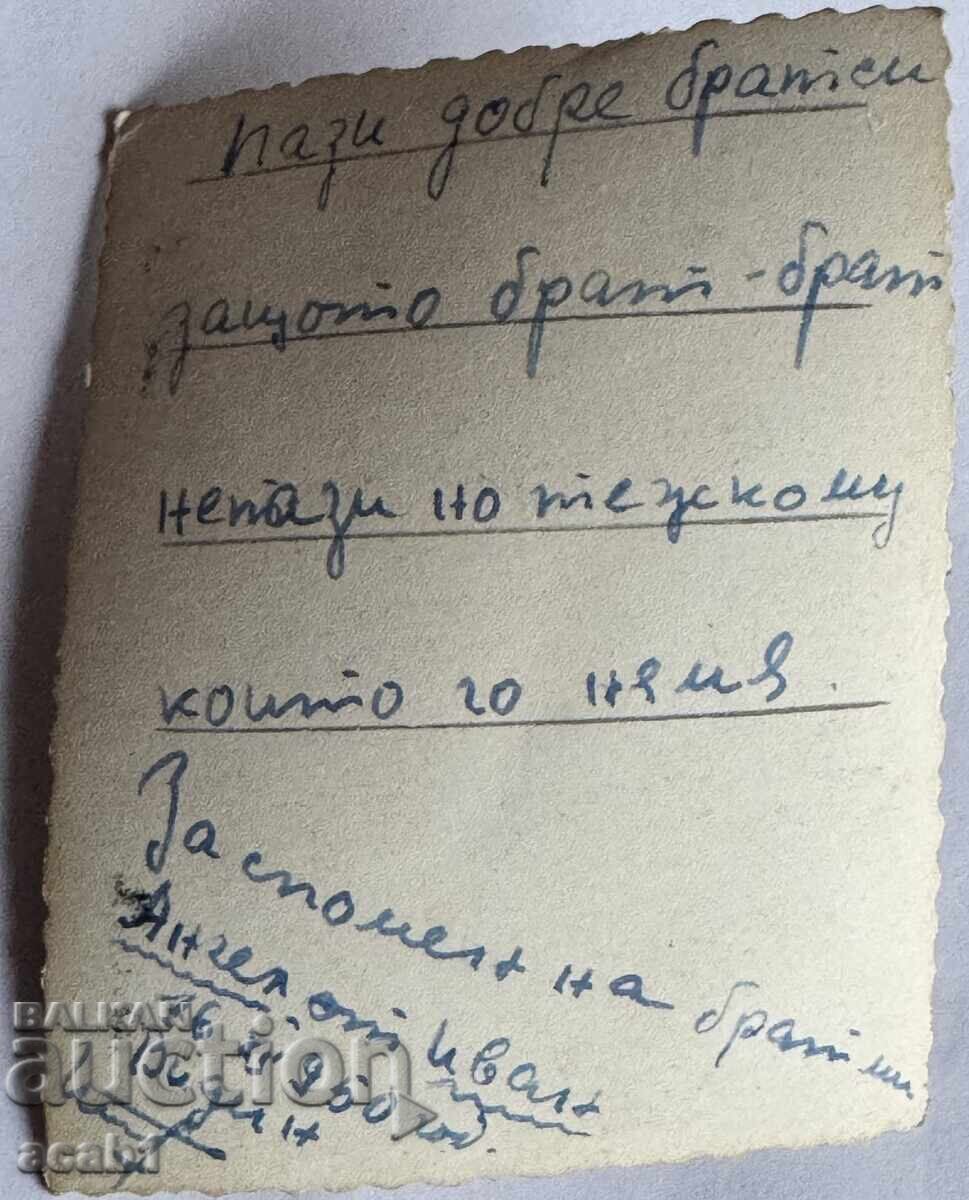 пази добре братси
защото брат-брат
непази но тежкому
които го нема.
За спомен на брат ми
Ангел от Иван
BALKAN
auction
acab1